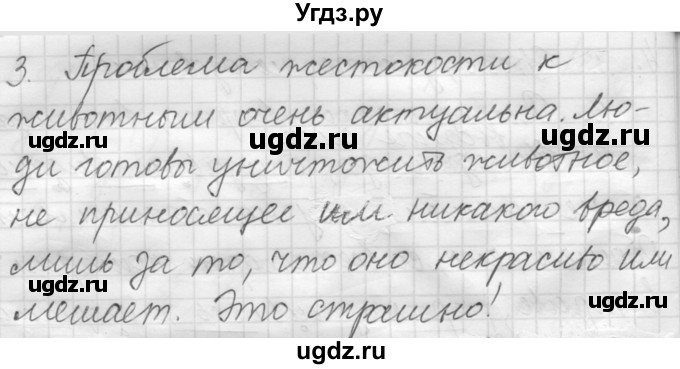 Угдз.ру
3. Проблема жестокости к
животным очень актуальна. Лю-
ugdz.ru ugdz.ru ugdz.ru
ди готовы уничтожить животное,
не приносящее им никакого вреда,
ugdz.ru ugdz.ru
лишь за то, что оно некрасиво или
ugdz.ru ugdz.ru ugdz.ru
мешает. Это страшно!
ugdz.ru